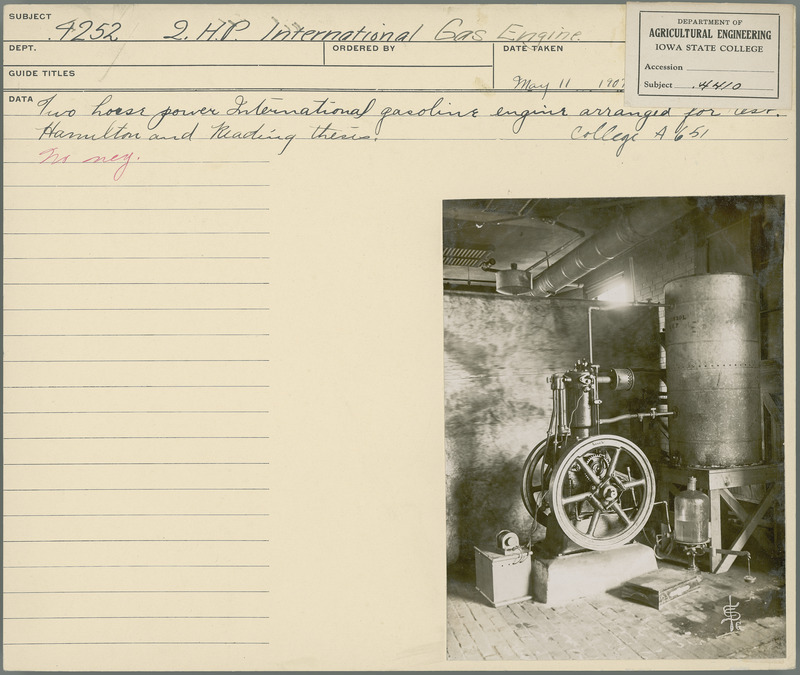 SUBJECT 4252 2. H.P. International Gas Engine.
DEPT. ORDERED BY DATE TAKEN
GUIDE TITLES May 11 1907
DEPARTMENT OF
AGRICULTURAL ENGINEERING
IOWA STATE COLLEGE
Accession
Subject .4410
DATA Two horse power International gasoline engine arranged for test.
Hamilton and Reading thesis. College A 651
No neg.